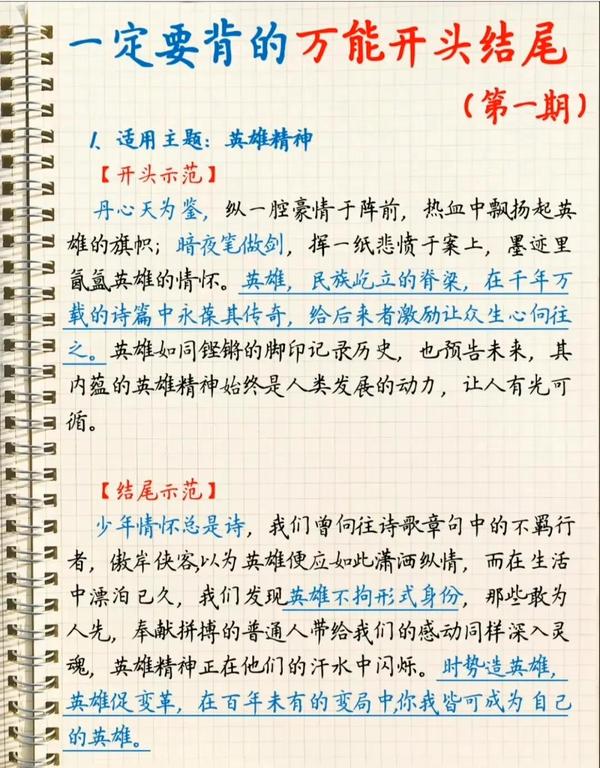 一定要背的万能开头结尾
（第一期）
1、适用主题：英雄精神
【开头示范】
丹心天为鉴，纵一腔豪情于阵前，热血中飘扬起英
雄的旗帜；暗夜笔做剑，挥一纸悲愤于案上，墨迹里
氤氲英雄的情怀。英雄，民族屹立的脊梁，在千年万
载的诗篇中永葆其传奇，给后来者激励让众生心向往
之。英雄如同铿锵的脚印记录历史，也预告未来，其
内蕴的英雄精神始终是人类发展的动力，让人有光可
循。
【结尾示范】
少年情怀总是诗，我们曾向往诗歌章句中的不羁行
者，傲岸侠客,以为英雄便应如此潇洒纵情，而在生活
中漂泊已久，我们发现英雄不拘形式身份，那些敢为
人先，奉献拼搏的普通人带给我们的感动同样深入灵
魂，英雄精神正在他们的汗水中闪烁。时势造英雄，
英雄促变革，在百年未有的变局中,你我皆可成为自己
的英雄。